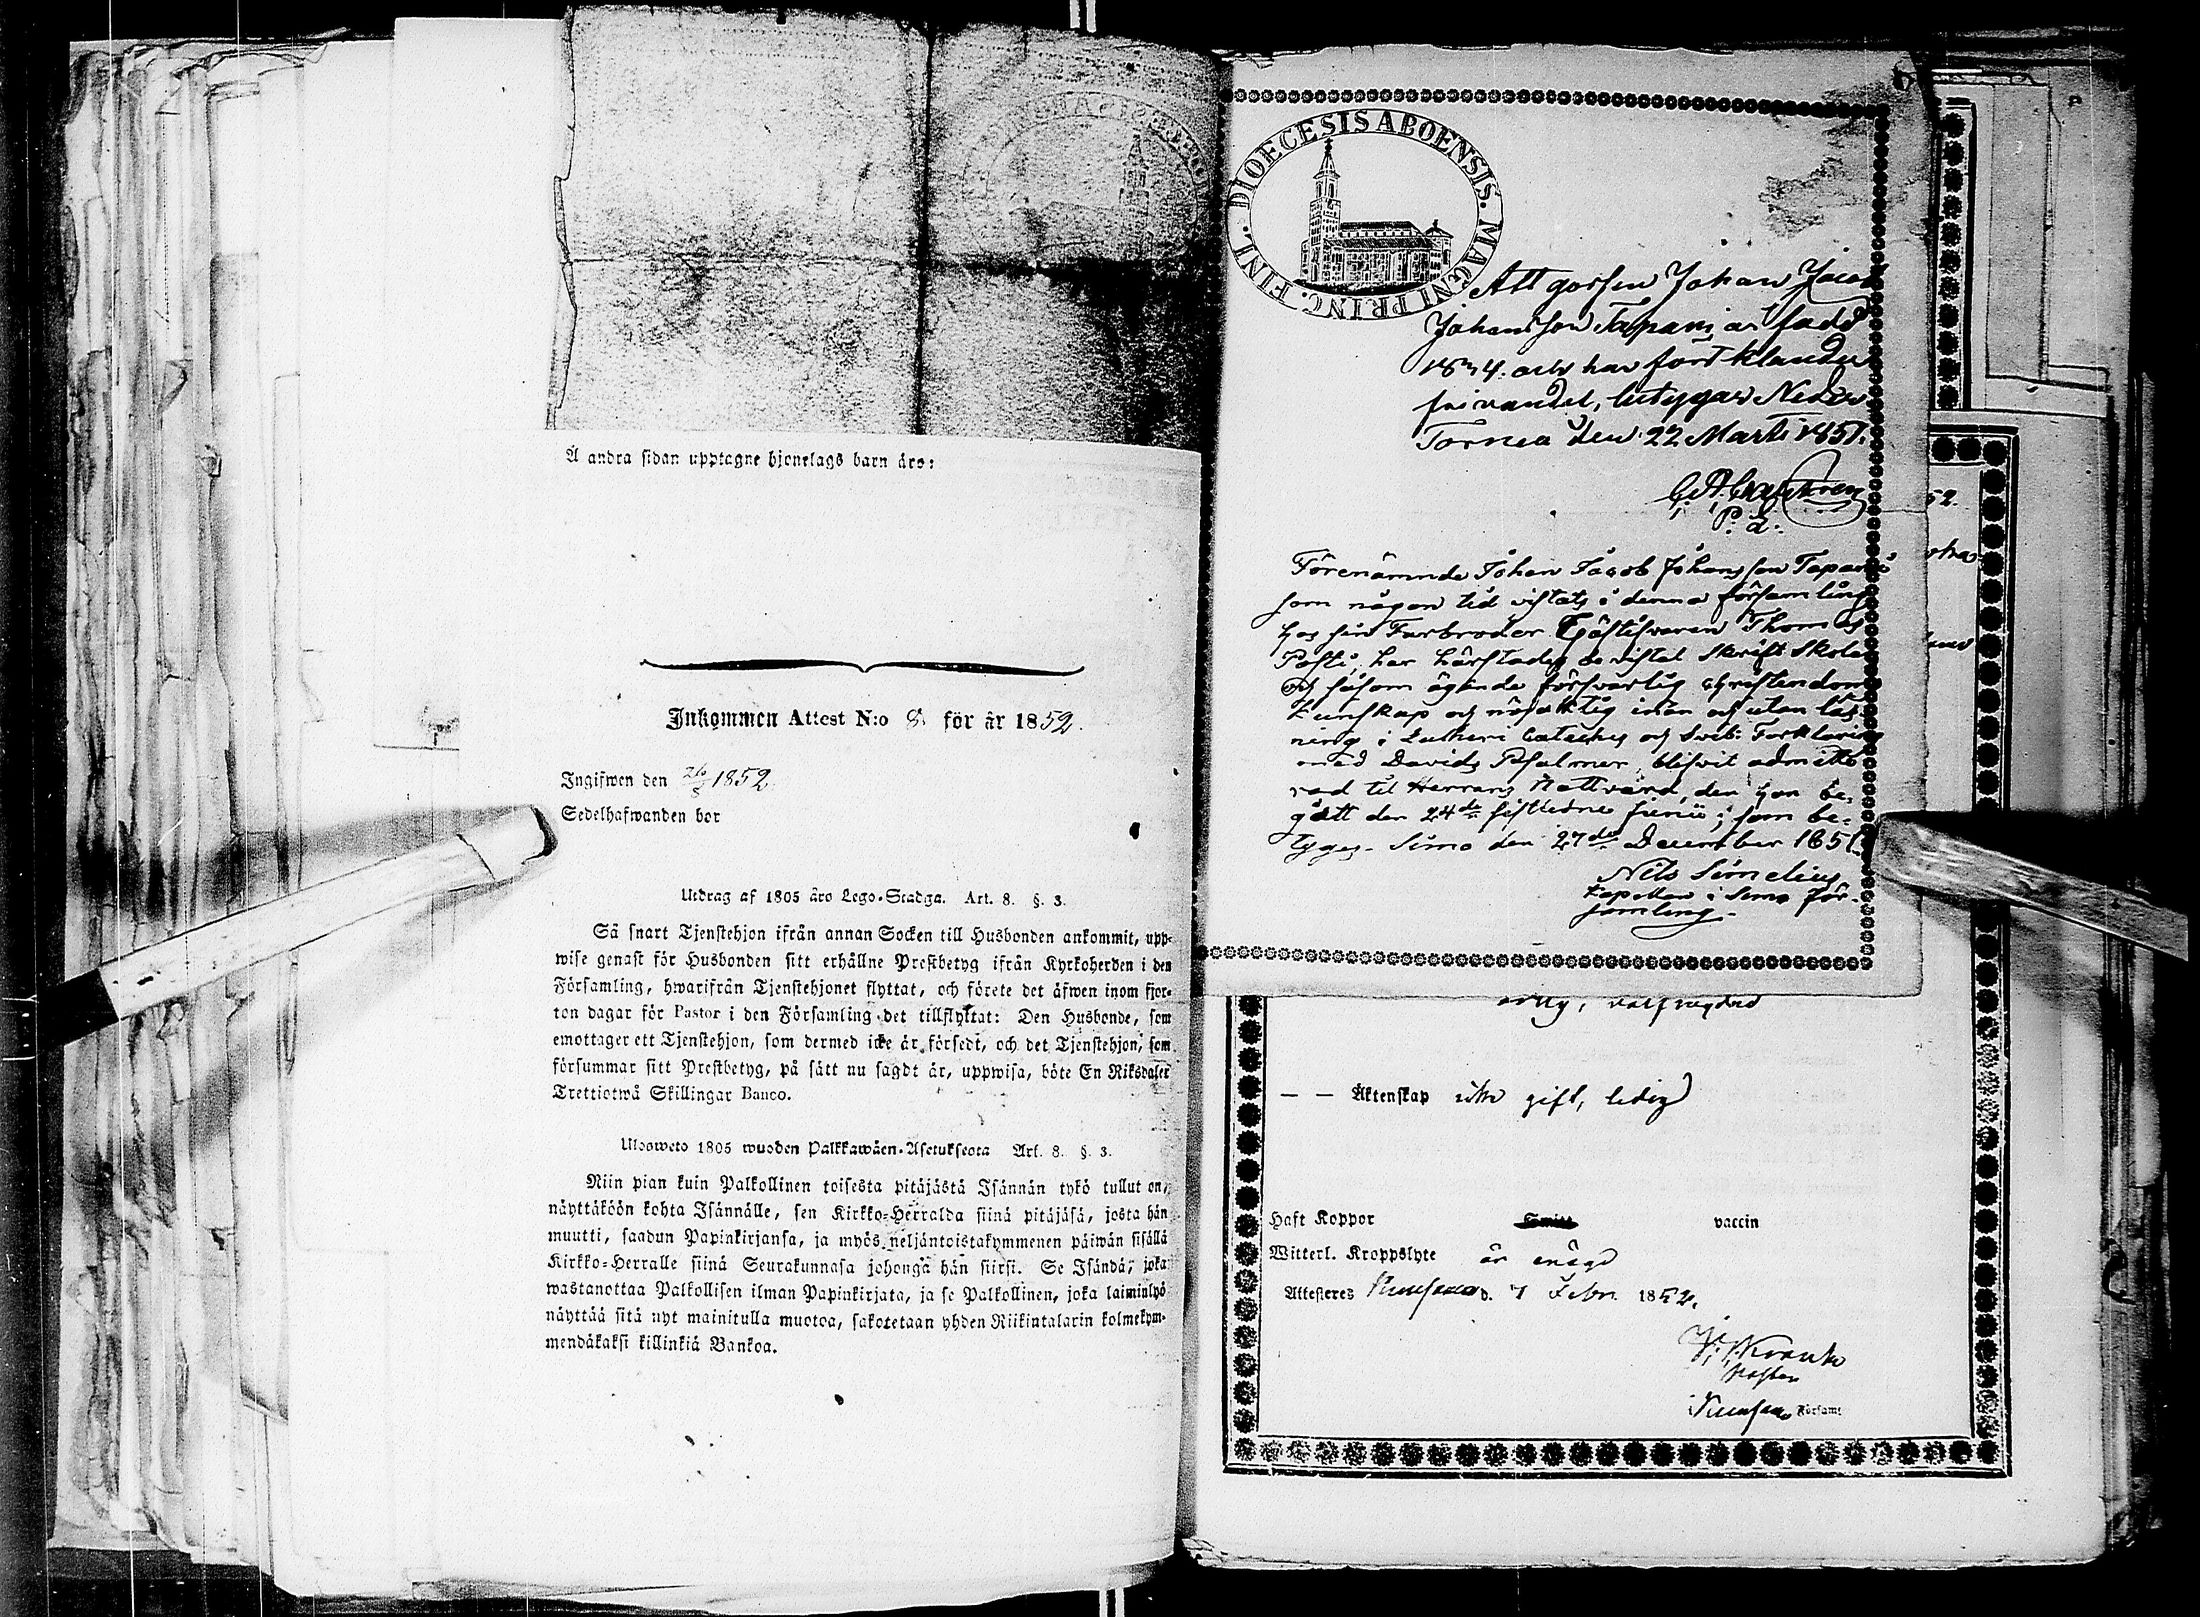 Å andra sidan upptagne hjonelags barn äro:
Inkommen Attest N:o 8 för år 1852.
Ingifwen den 26/3 1852.
Sedelhafwanden bor
Utdrag af 1805 åro Lego-Stadga. Art. 8. §. 3.
Så snart Tjenstehjon ifrån annan Socken till Husbonden ankommit, upp-
wise genast för Husbonden sitt erhållne Prestbetyg ifrån Kyrkoherden i den
Församling, hwarifrån Tjenstehjonet flyttat, och förete det äfwen inom fjor-
ton dagar för Pastor i den Församling det tillflyttat: Den Husbonde, som
emottager ett Tjenstehjon, som dermed icke är försedt, och det Tjenstehjon, som
försummar sitt Prestbetyg, på sätt nu sagdt är, uppwisa, böte En Riksdaler
Trettiotwå Skillingar Banco.
Ulosweto 1805 wuoden Palkkawäen-Asetuksesta Art. 8. §. 3.
Niin pian kuin Palkollinen toisesta pitäjästä Isännän tykö tullut on,
näyttäköön kohta Isännälle, sen Kirkko-Herralda siinä pitäjäsä, josta hän
muutti, saadun Papinkirjansa, ja myös neljäntoistakymmenen päiwän sisällä
Kirkko-Herralle siinä Seurakunnasa johonga hän siirsi. Se Isändä, joka
wastanottaa Palkollisen ilman Papinkirjata, ja se Palkollinen, joka laiminlyö
näyttää sitä nyt mainitulla muotoa, sakotetaan yhden Riikintalarin kolmekym-
mendäkaksi killinkiä Bankoa.
DIOECESIS ABOENSIS. MAGNI PRINC. FINL.
Att gossen Johan Jacob
Johansson Tapani är född
1834. och har fört klander
fri vandel, betygar Neder
Torneå den 22 Marti 1851.
P. L.
Förenämnde Johan Jacob Johansson Tapani
som någon tid vistats i denna församling
hos sin Farbroder Gästgifvaren Thomas
Posti, har härstädes bevistat Skrift Skolan
och såsom ägande försvarlig christendoms
kunskap och nöjaktig innan och utan läs-
ning i Lutheri Cateches och Sveb: Förklaring
med Davids Psalmer, blifvit admitte
rad til Herrans Nattvard, den han be-
gått den 24de sistledne Junii; som be-
tyges. Simo den 27de December 1851.
Nils Simelius
Kapellan i Simo För-
samling.
52.
ärlig, välfrejdad
— — Äktenskap icke gift, ledig
Haft Koppor vaccin
Witterl. Kroppslyte är enögd
Attesteres Kuusamo d. 7 Febr. 1852.
Pastor
i Kuusamo Församl.